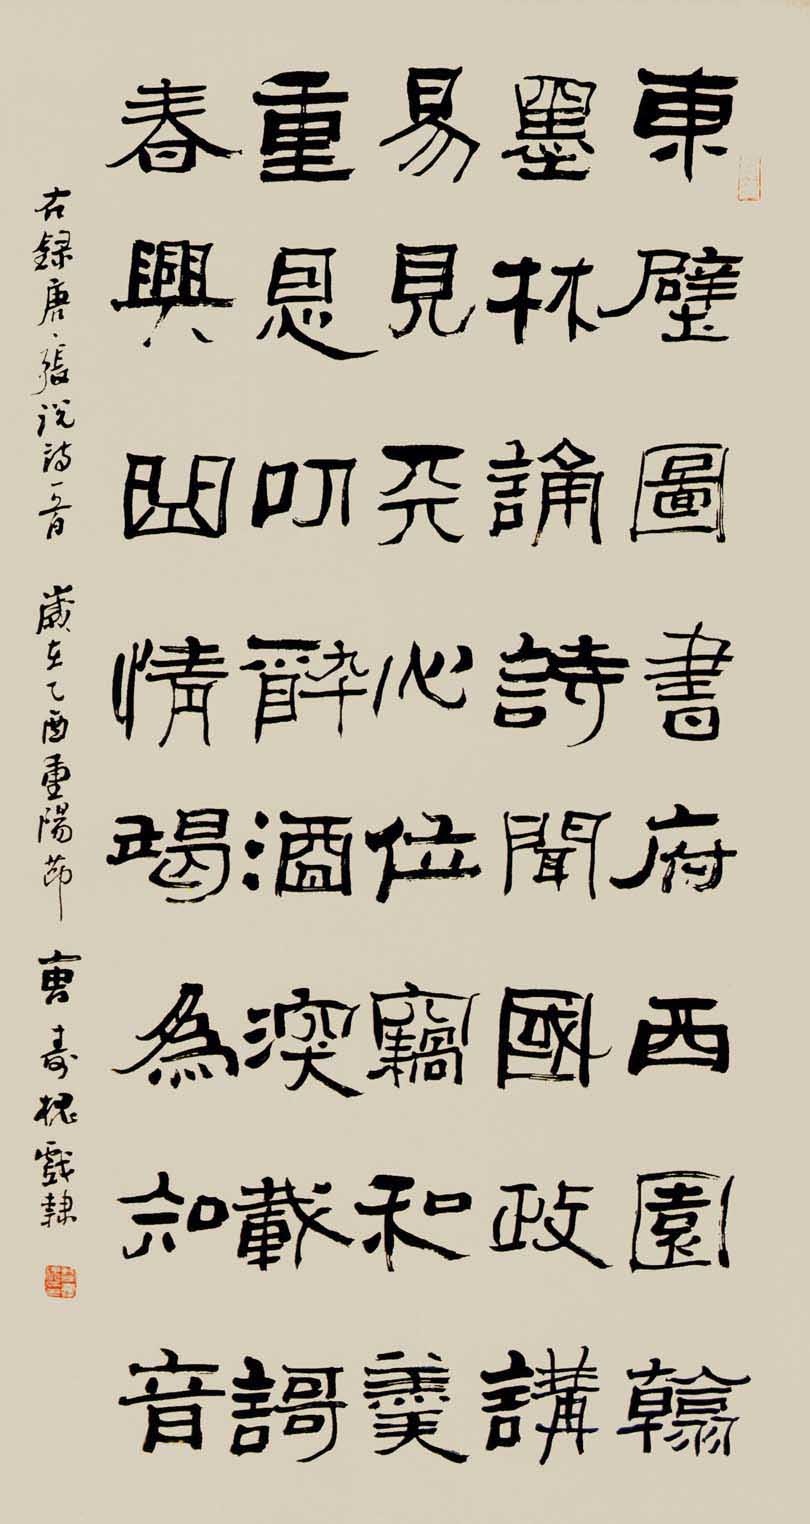 東壁圖書府西園翰
墨林誦詩聞國政講
易見天心位竊和羹
重恩叨醉酒深載謌
春興曲情竭為知音
右録唐張説詩一首 歲在乙酉重陽節 曹壽槐戲隸